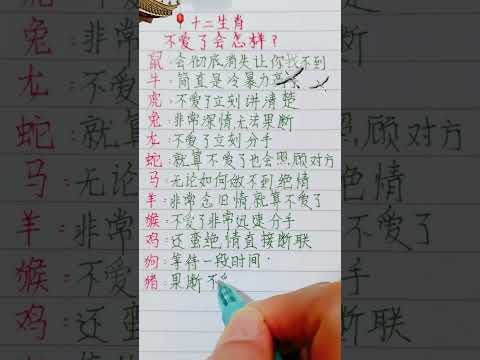 十二生肖
不爱了会怎样？
鼠：会彻底消失让你找不到
牛：简直是冷暴力
虎：不爱了立刻讲清楚
兔：非常深情,无法果断
龙：不爱了立刻分手
蛇：就算不爱了也会照顾对方
马：无论如何做不到绝情
羊：非常念旧情就算不爱了
猴：不爱了非常迅速分手
鸡：还蛮绝情直接断联
狗：等待一段时间
猪：果断不